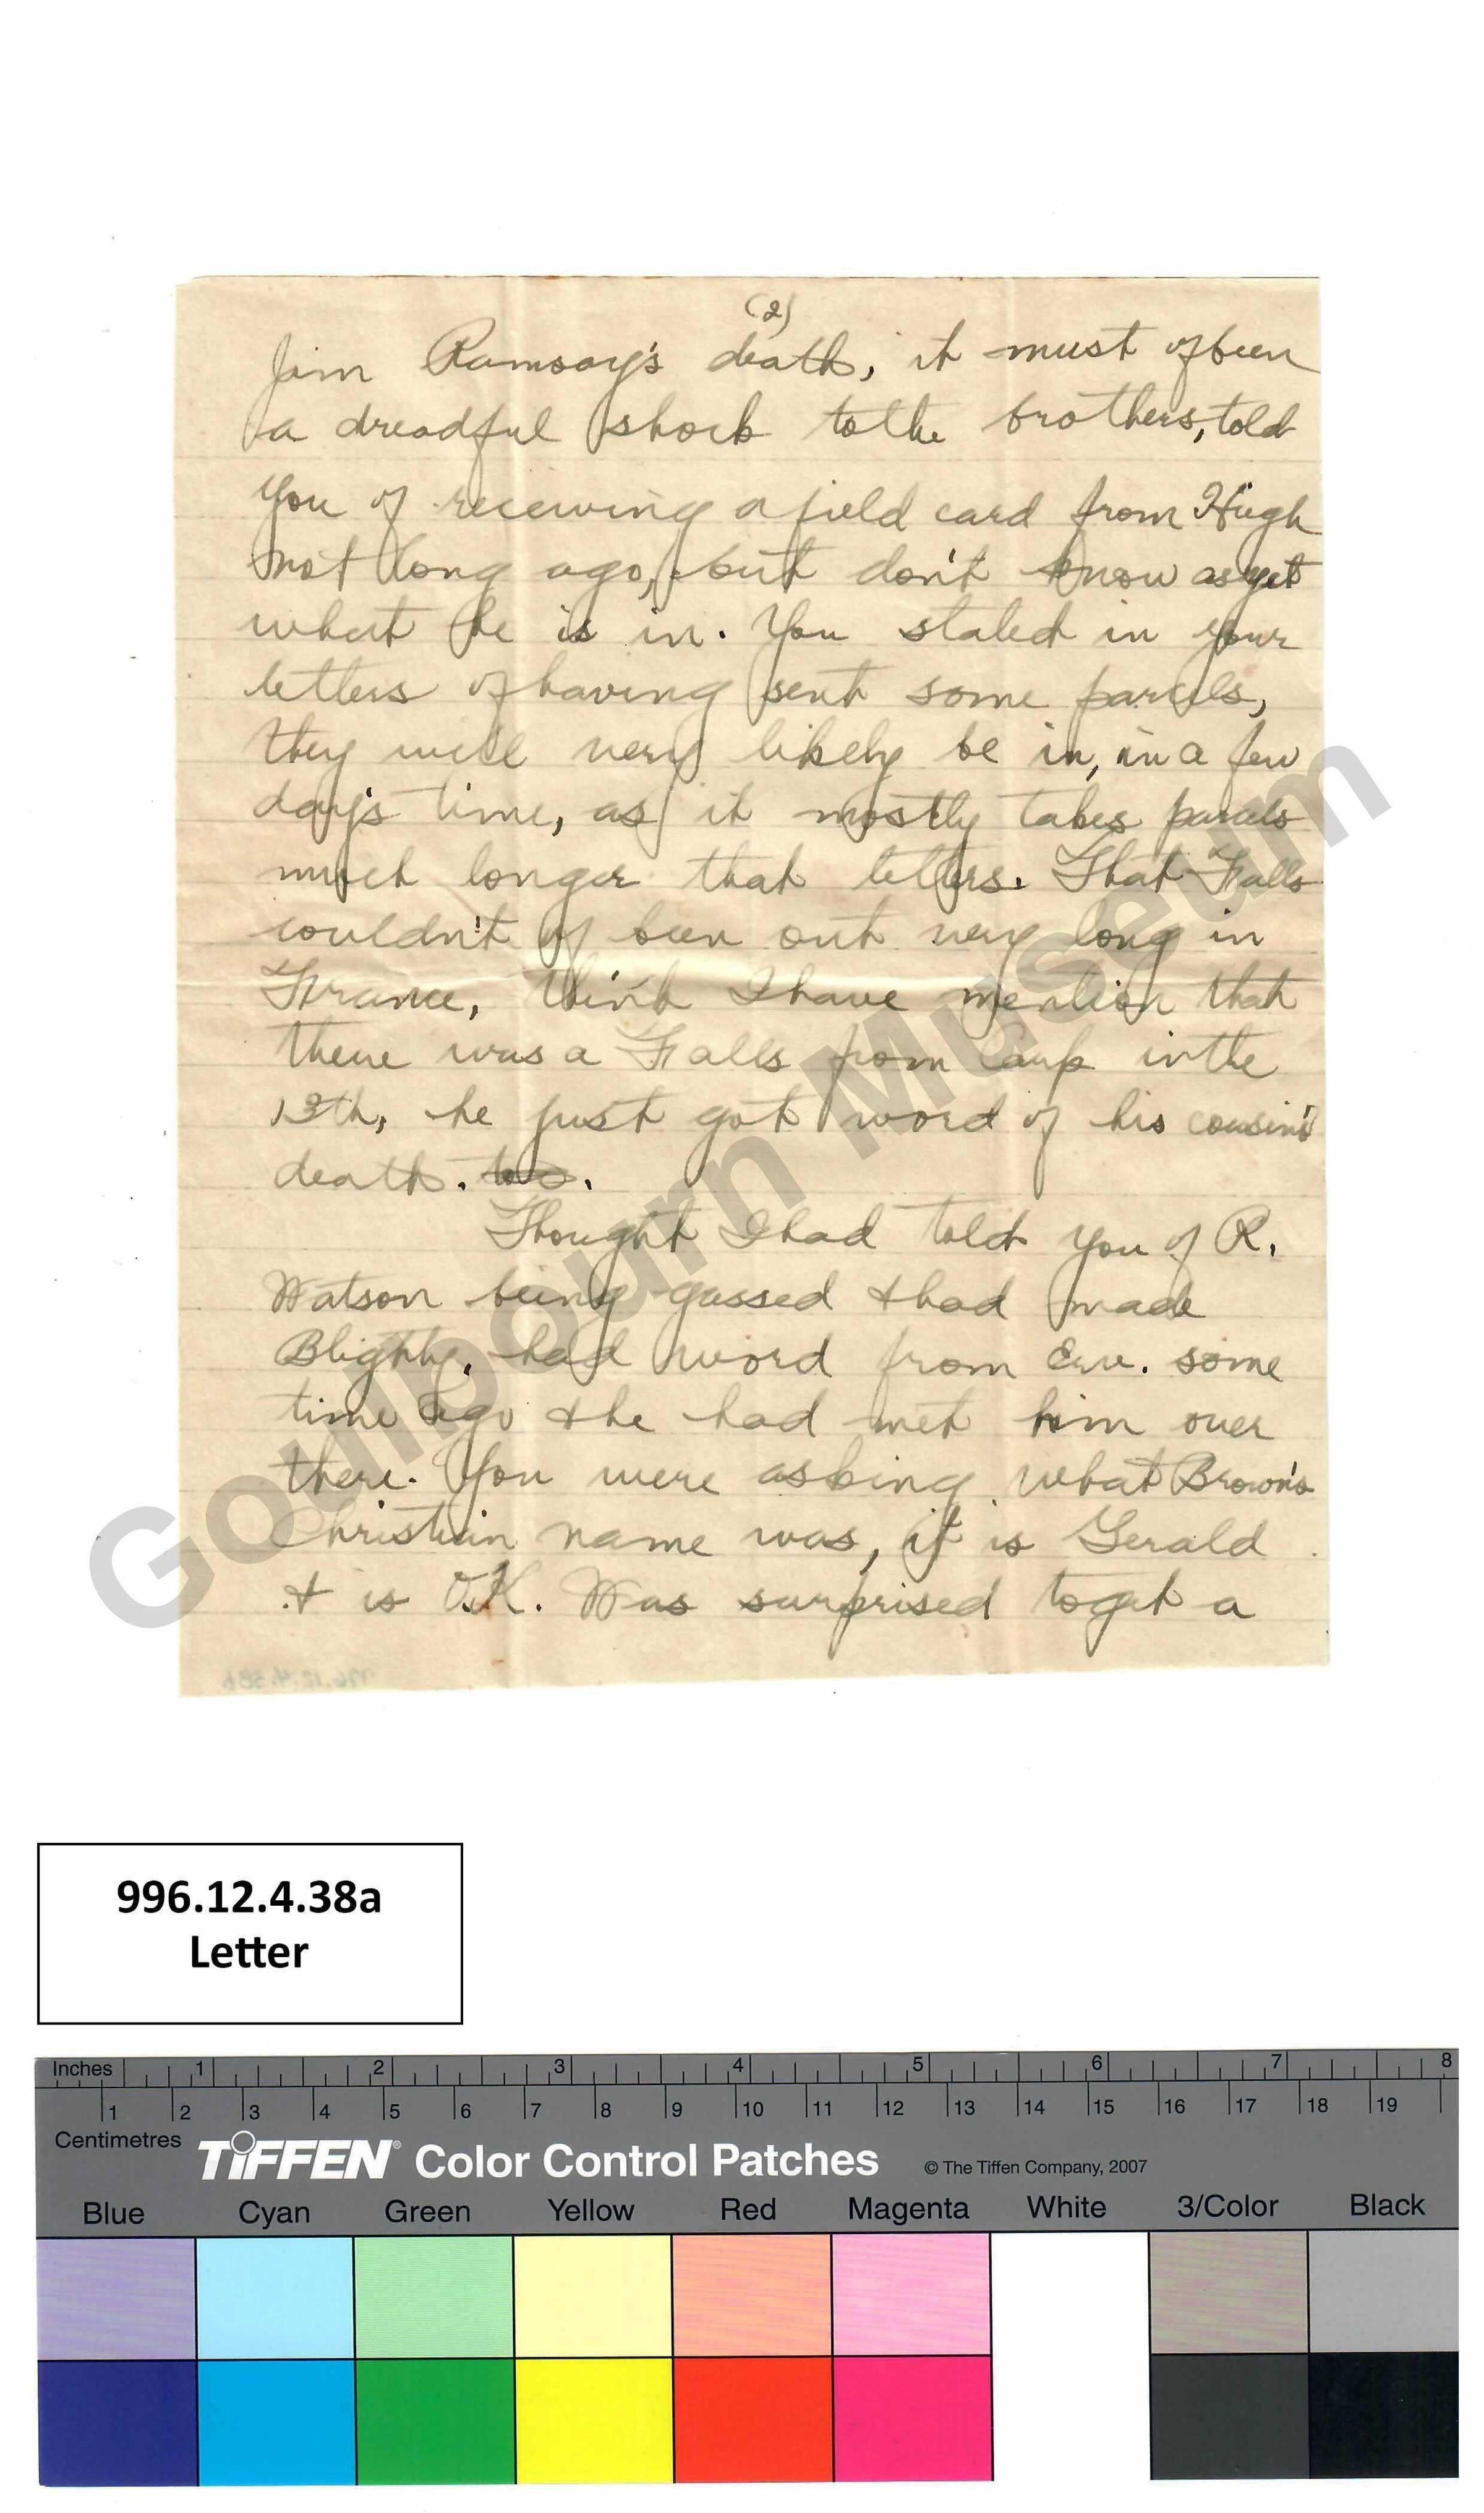 (2)
Jim Ramsay's death, it must of been
a dreadful shock to the brothers, told
you of receiving a field card from Hugh
not long ago, but don't know as yet
what he is in. You stated in your
letters of having sent some parcels,
they will very likely be in, in a few
day's time, as it mostly takes parcels
much longer that letters. That Falls
couldn't of been out very long in
France, think I have mention that
there was a Falls from Carp in the
13th, he just got word of his cousin's
death.
Thought I had told you of R.
Watson being gassed & had made
Blighty, had word from Erv. some
time ago & he had met him over
there. You were asking what Brown's
Christian name was, it is Gerald
& is O.K. Was surprised to get a
Goulbourn Museum
996.12.4.38b
996.12.4.38a
Letter
Inches 1 2 3 4 5 6 7 8
1 2 3 4 5 6 7 8 9 10 11 12 13 14 15 16 17 18 19
Centimetres
TIFFEN® Color Control Patches © The Tiffen Company, 2007
Blue Cyan Green Yellow Red Magenta White 3/Color Black